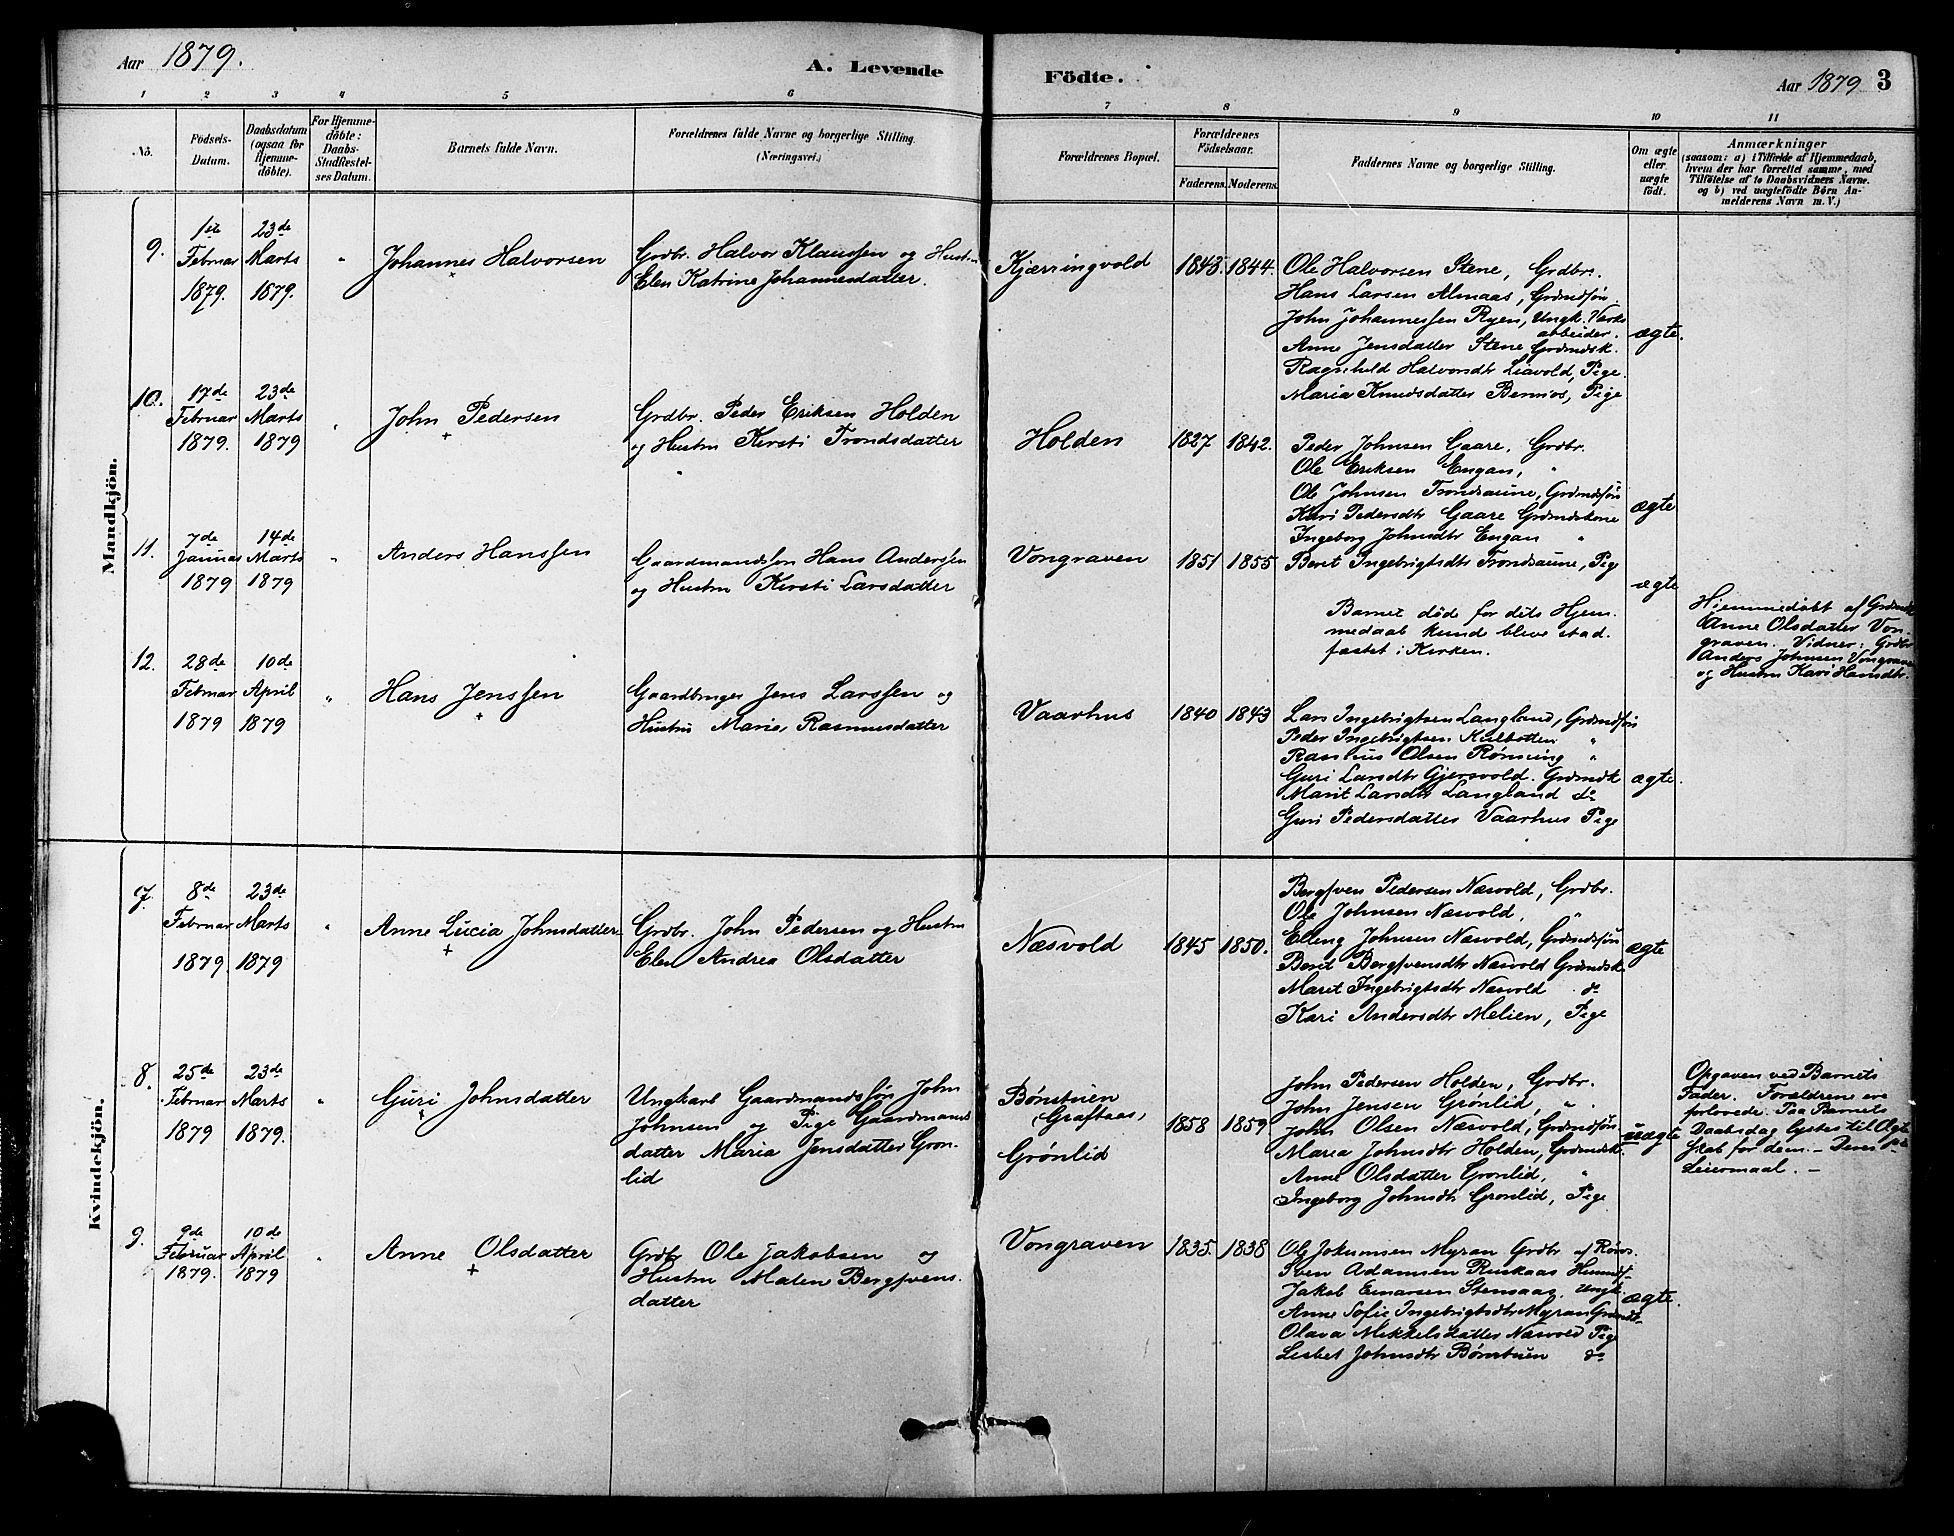 Aar 1879.
A. Levende
Födte.
Aar 1879
3
1 2 3 4 5 6 7 8 9 10 11
No.
Födsels-
Datum.
Daabsdatum
(ogsaa for
Hjemme-
döbte).
For Hjemme-
döbte:
Daabs-
Stadfæstel-
ses Datum.
Barnets fulde Navn.
Forældrenes fulde Navne og borgerlige Stilling.
(Næringsvei.)
Forældrenes Bopæl.
Forældrenes
Födselsaar.
Faderens. Moderens.
Faddernes Navne og borgerlige Stilling.
Om ægte
eller
uægte
födt.
Anmærkninger
(saasom: a) i Tilfælde af Hjemmedaab,
hvem der har forrettet samme, med
Tilföielse af to Daabsvidners Navne.
og b) ved uægtefödte Börn An-
melderens Navn m. V.)
Mandkjön.
9.
1ste
Februar
1879.
23de
Marts
1879.
"
Johannes Halvorsen
Grdbr. Halvor Klaussen og Hustru
Elen Katrine Johannesdatter.
Kjærringvold
1843. 1844.
Ole Halvorsen Stene, Grdbr.
Hans Larsen Almaas, Grdmdsøn.
John Johannessen Ryen, Ungk. Værks
arbeider.
Anne Jensdatter Stene Grdmdsk.
Ragnhild Halvorsdtr Liavold, Pige.
Maria Knudsdatter Pige
ægte.
10.
17de
Februar
1879.
23de
Marts
1879
"
John Pedersen
Grdbr. Peder Eriksen Holden
og Hustru Kersti Trondsdatter
Holden
1827 1842.
Peder Johnsen Gaare, Grdbr.
Ole Eriksen Engan, "
Ole Johnsen Trondsaune, Grdmdsøn
Kari Pedersdtr Gaare Grdmdskone
Ingeborg Johnsdtr Engan "
Beret Ingebrigtsdtr Trondsaune, Pige
ægte
11.
7de
Januar
1879
14de
Marts
1879
"
Anders Hanssen
Gaardmandssøn Hans Anderssen
og Hustru Kersti Larsdatter
Vongraven
1851 1855
Barnet døde før dets Hjem-
medaab kunde bleve stad-
fæstet i Kirken.
ægte
Hjemmedøbt af Grdmdsk
Anne Olsdatter Von-
graven. Vidner: Grdbr
Anders Johnsen Vongraven
og Hustru Kari Hansdtr.
12.
28de
Februar
1879
10de
April
1879
"
Hans Jenssen
Gaardbruger Jens Larssen og
Hustru Marie Rasmusdatter
Vaarhus
1840 1843
Lars Ingebrigtsen Langland, Grdmdsøn
Peder Ingebrigtsen Kulbotten "
Rasmus Olsen Rønning "
Guri Larsdtr Gjersvold. Grdmdsk
Marit Larsdtr Langland do
Guri Pedersdatter Vaarhus Pige
ægte.
Kvindekjön.
7.
8de
Februar
1879
23de
Marts
1879
"
Anne Lucia Johnsdatter
Grdbr. John Pedersen og Hustru
Elen Andrea Olsdatter
Næsvold
1845 1850.
Bergsven Pedersen Næsvold, Grdbr.
Ole Johnsen Næsvold, "
Elling Johnsen Næsvold, Grdmdssøn
Beret Bergsvensdtr Næsvold Grdmdsk
Marit Ingebrigtsdtr Næsvold do
Kari Andersdtr Melien, Pige
ægte
8.
25de
Februar
1879
23de
Marts
1879.
"
Guri Johnsdatter
Ungkarl Gaardmandssøn John
Johnsen og Pige Gaardmands
datter Maria Jensdatter Grøn-
lid
Bønstuen
Græftaas,
Grønlid
1858 1859
John Pedersen Holden, Grdbr.
John Jensen Grønlid, "
John Olsen Næsvold, Grdmdsøn
Maria Johnsdtr Holden, Grdmdsk.
Anne Olsdatter Grønlid, "
Ingeborg Johnsdtr Grønlid, Pige
uægte
Opgaven ved Barnets
Fader. Forældrene ere
forlovede. Paa Barnets
Daabsdag lystes til Ægte-
skab for dem. – Deres
Leiermaal. –
9.
9de
Februar
1879.
10de
April
1879
"
Anne Olsdatter
Grdbr Ole Jakobsen og
Hustru Malen Bergsvens-
datter
Vongraven
1835. 1838
Ole Myran Grdbr af Røros.
Sven Adamsen Ruskaas Husmdf-
Jakob Einarsen Stensaas, Ungk.
Anne Sofie Ingebrigtsdtr Myran Grdmdk.
Olava Mikkelsdatter Næsvold Pige
Lisbet Johnsdtr Bønstuen do
ægte.